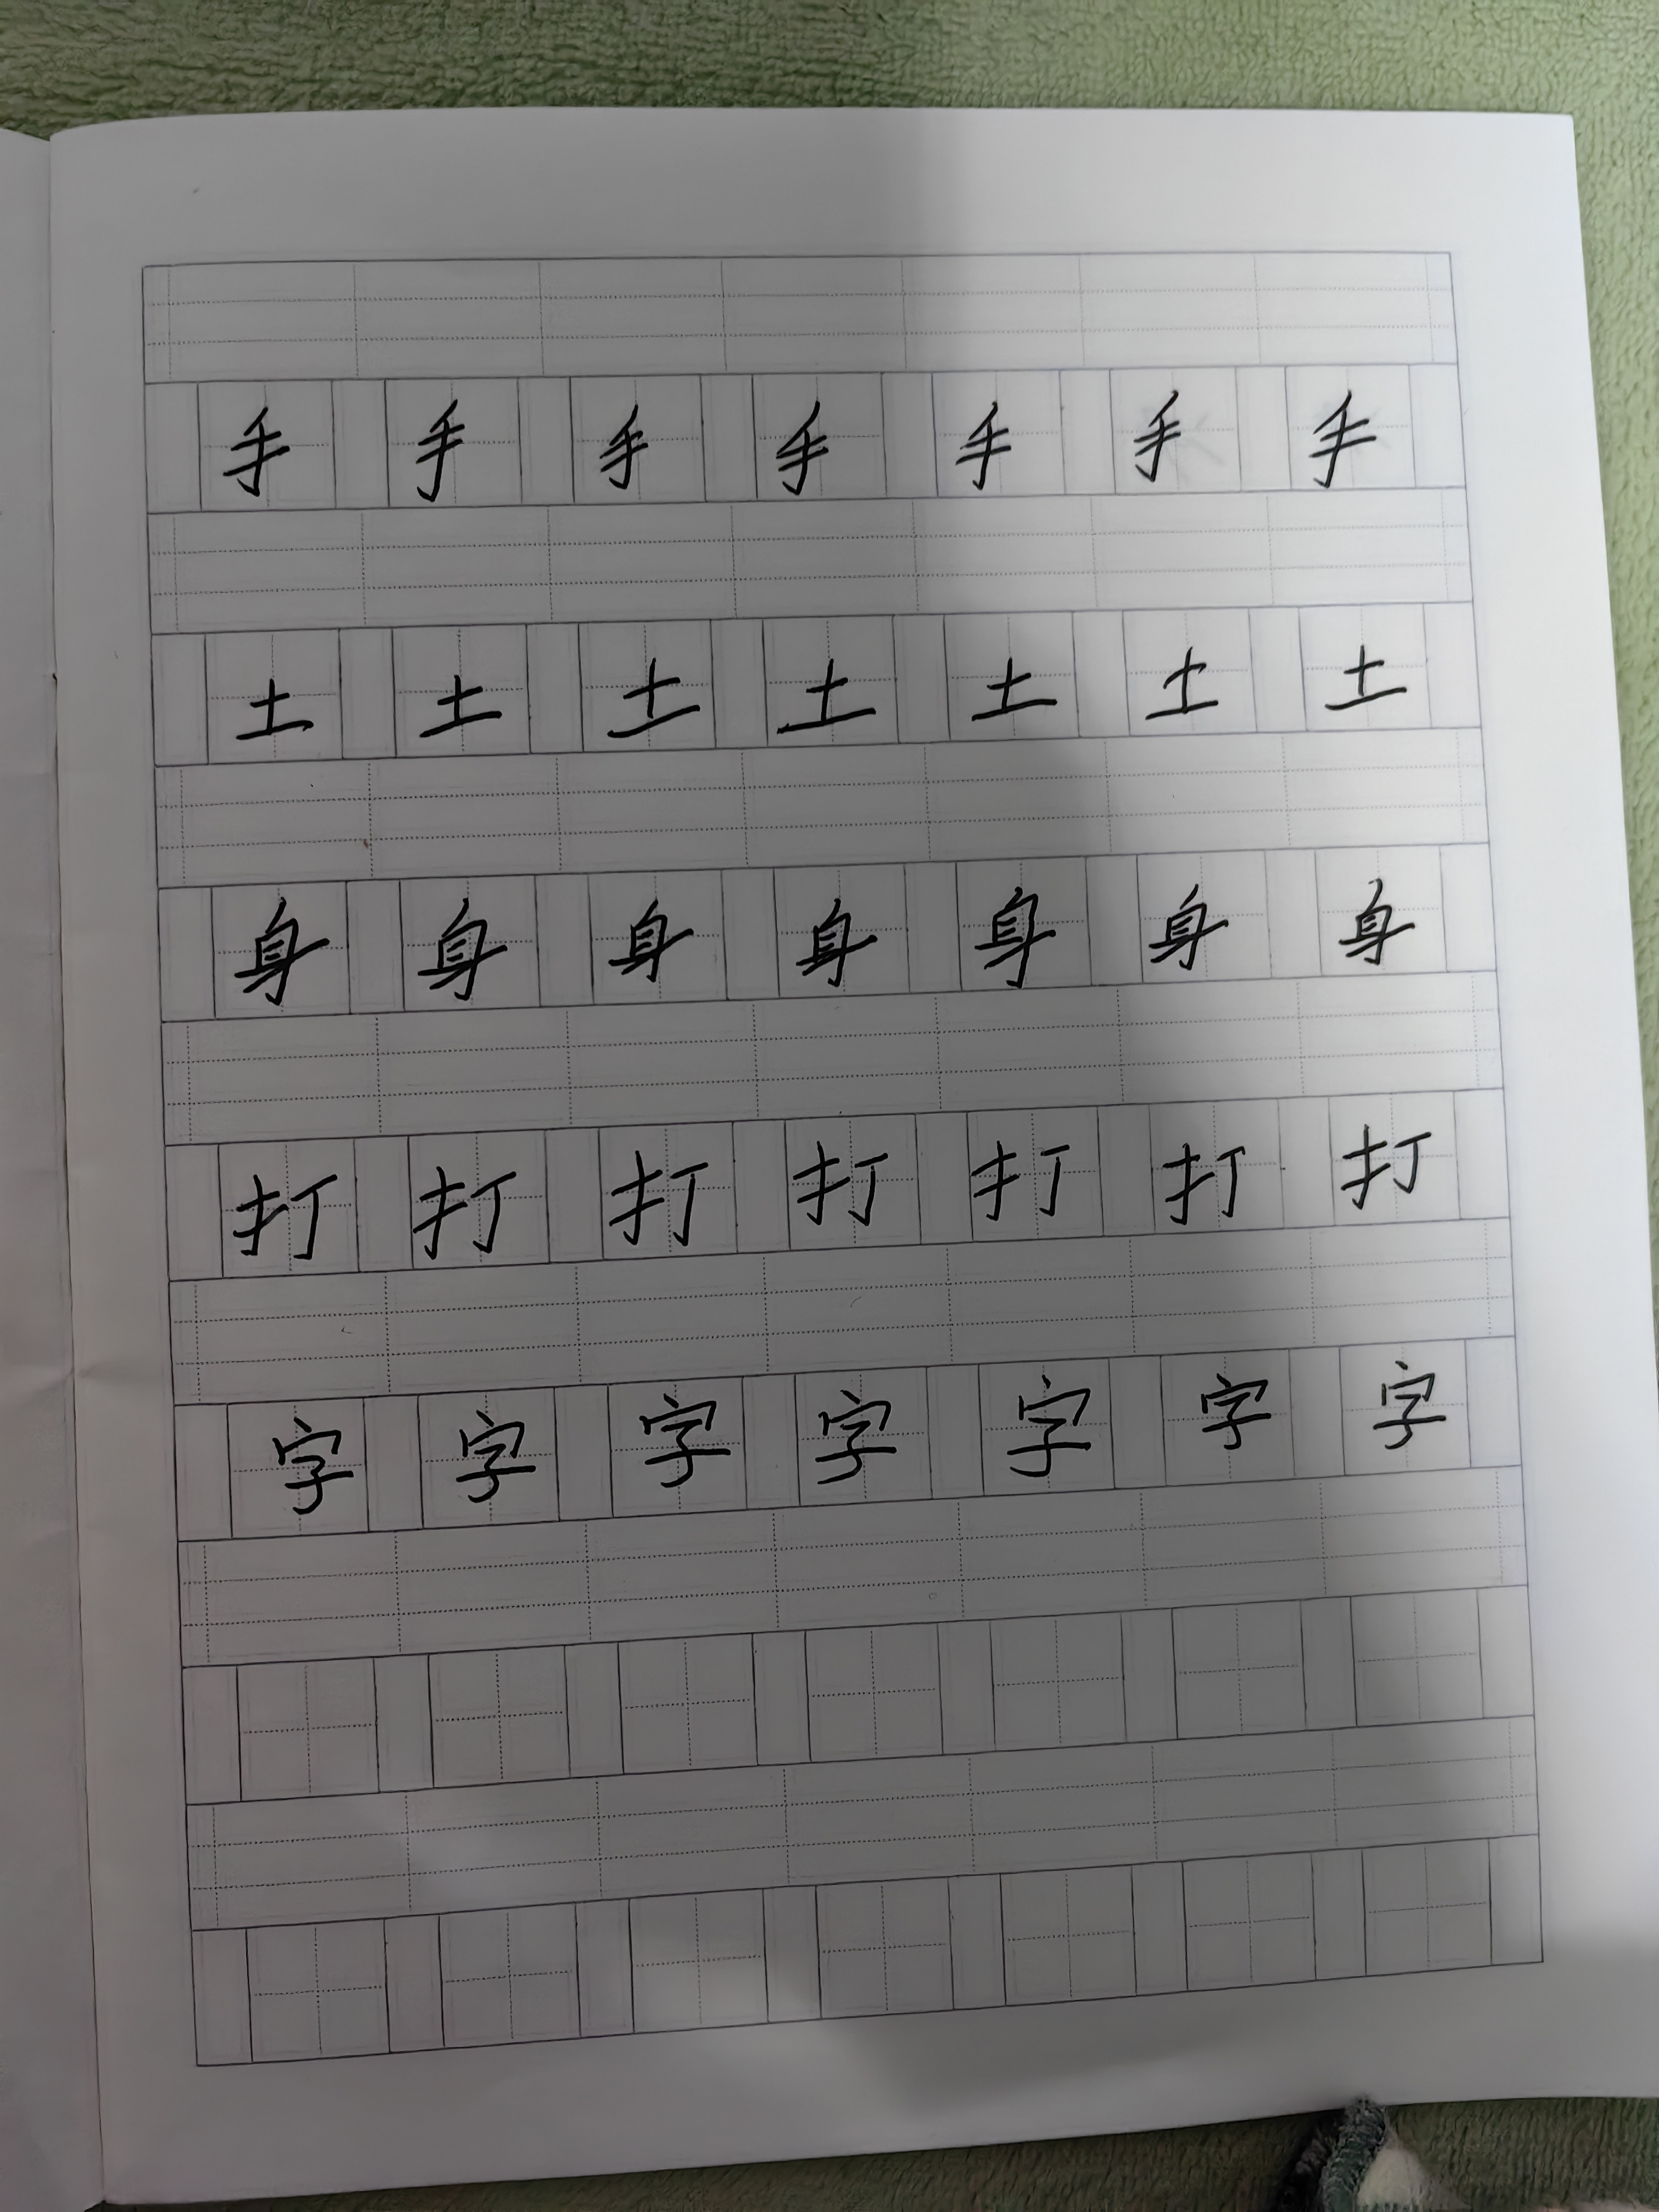 手 手 手 手 手 手 手
土 土 土 土 土 土 土
身 身 身 身 身 身 身
打 打 打 打 打 打 打
字 字 字 字 字 字 字